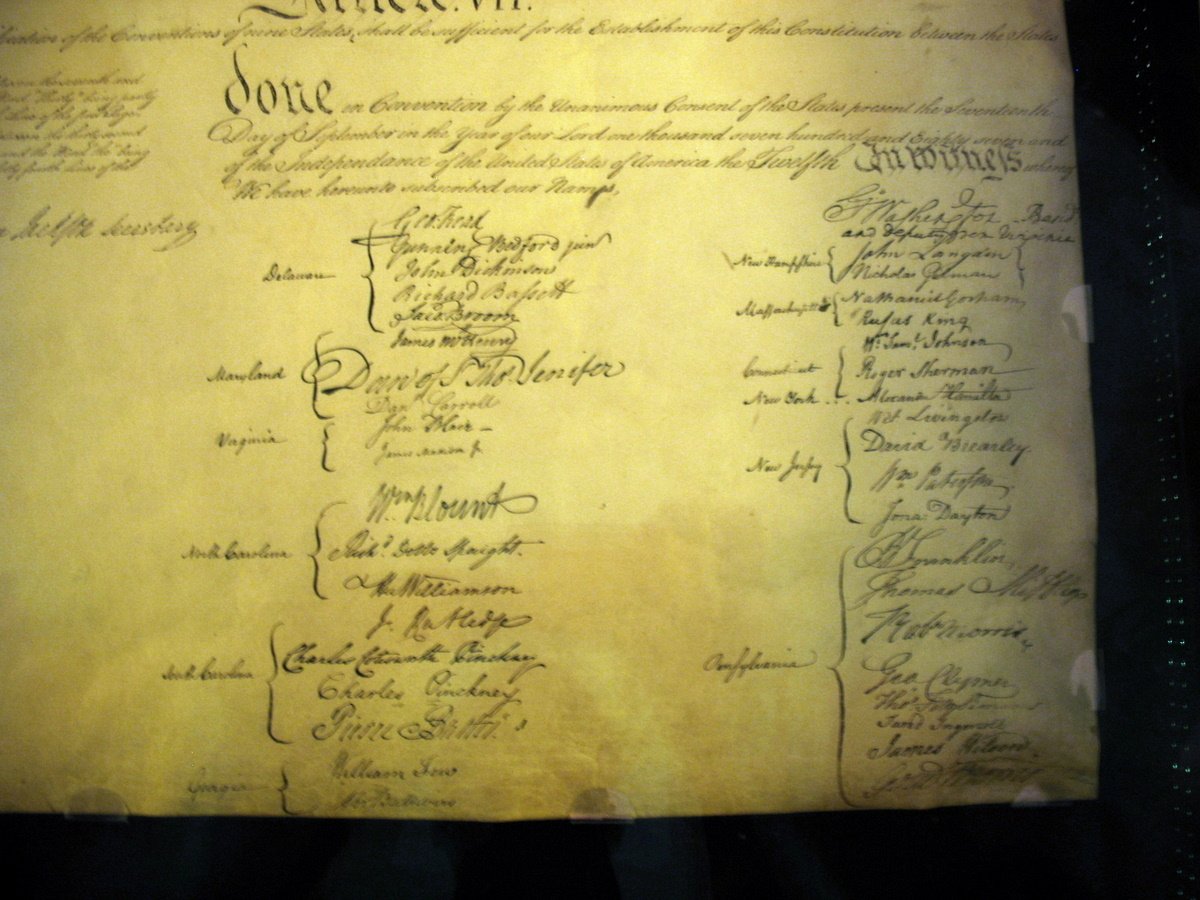 Article. VII.
of the Conventions of nine States, shall be sufficient for the Establishment of this Constitution between the States
done in Convention by the Unanimous Consent of the States present the Seventeenth
Day of September in the Year of our Lord one thousand seven hundred and Eighty seven and
of the Independance of the United States of America the Twelfth In Witness whereof
We have hereunto subscribed our Names,
Secretary
Delaware
Geo: Read
Gunning Bedford jun
John Dickinson
Richard Bassett
Jaco: Broom
Maryland
James McHenry
Dan of St Thos. Jenifer
Danl Carroll
Virginia
John Blair—
James Madison Jr.
North Carolina
Wm Blount
Richd. Dobbs Spaight.
Hu Williamson
South Carolina
J. Rutledge
Charles Cotesworth Pinckney
Charles Pinckney
Pierce Butler.
Georgia
William Few
Abr Baldwin
Go. Washington
and deputy from Virginia
New Hampshire
John Langdon
Nicholas Gilman
Massachusetts
Nathaniel Gorham
Rufus King
Connecticut
Wm. Saml. Johnson
Roger Sherman
New York . . .
Alexander Hamilton
New Jersey
Wil: Livingston
David Brearley.
Wm. Paterson.
Jona: Dayton
Pensylvania
B Franklin
Thomas Mifflin
Robt Morris.
Geo. Clymer
Thos. FitzSimons
Jared Ingersoll
James Wilson.
Gouv Morris